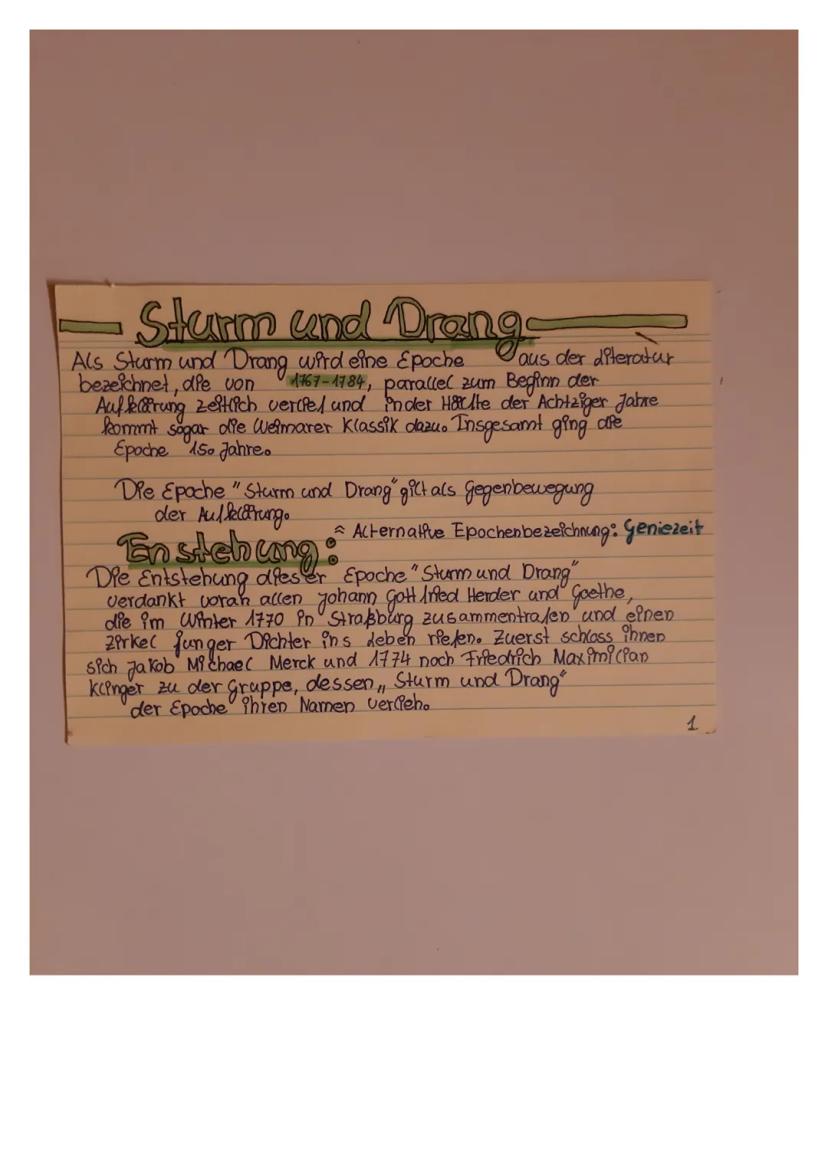 Sturm und Drang
Als Sturm und Drang wird eine Epoche aus der Literatur
bezeichnet, die von 1767-1784, parallel zum Beginn der
Aufklärung zeitlich verlief und in der Hälfte der Achtziger Jahre
kommt sogar die Weimarer Klassik dazu. Insgesamt ging die
Epoche 150 Jahre.
Die Epoche "Sturm und Drang" gilt als Gegenbewegung
der Aufklärung.
≈ Alternative Epochenbezeichnung: Geniezeit
Enstehung:
Die Entstehung dieser Epoche "Sturm und Drang"
verdankt vorah allen Johann Gottfried Herder und Goethe,
die im Winter 1770 in Straßburg zusammentrafen und einen
Zirkel junger Dichter ins Leben riefen. Zuerst schloss ihnen
sich Jakob Michael Merck und 1774 noch Friedrich Maximilian
Klinger zu der Gruppe, dessen „Sturm und Drang"
der Epoche ihren Namen verlieh.
1